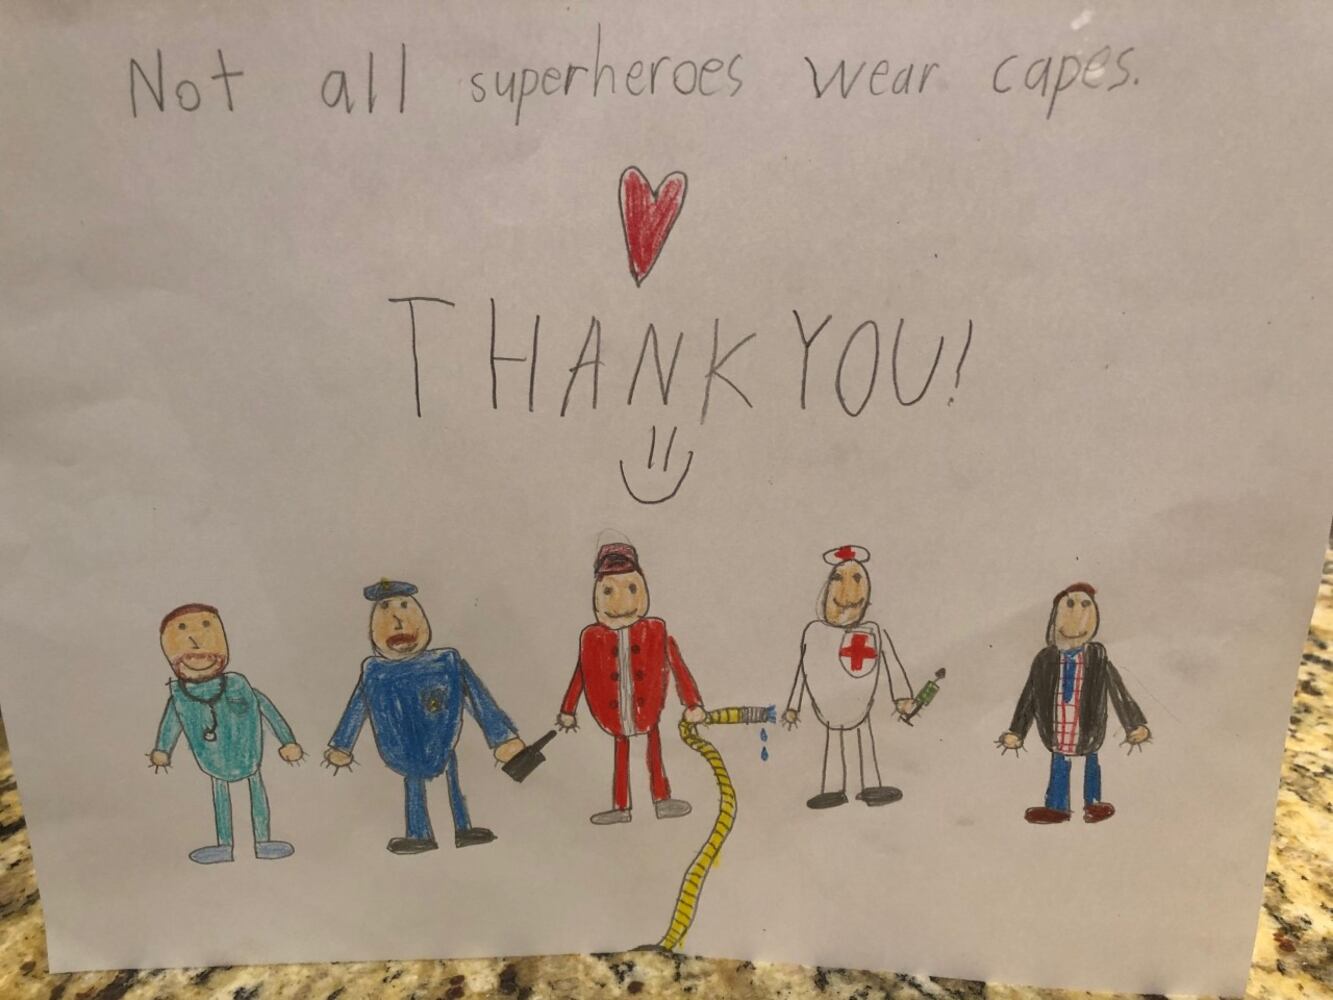 Not all superheroes wear capes.
THANK YOU!